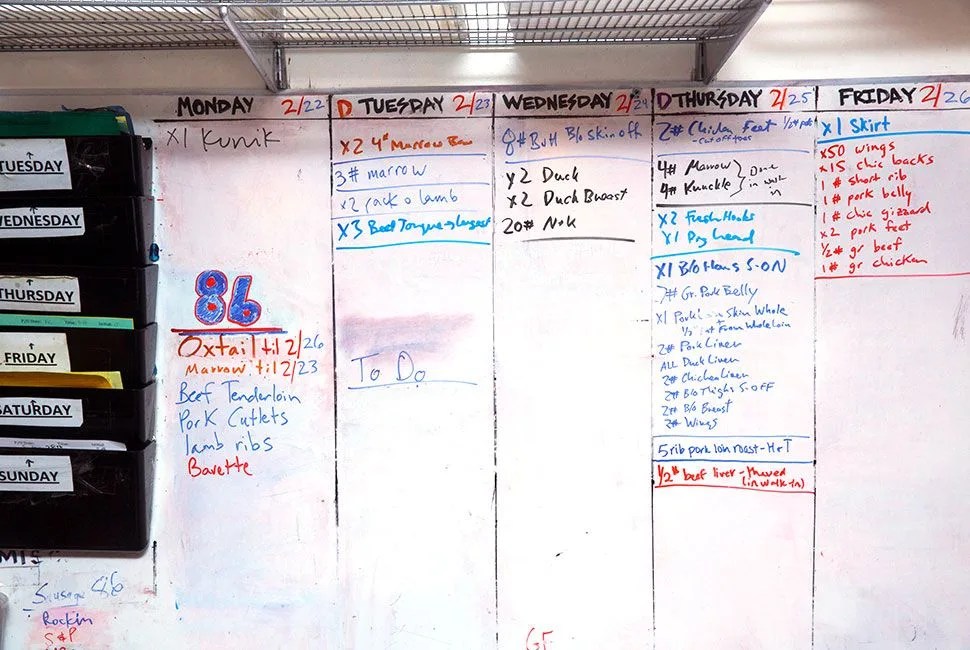 TUESDAY
WEDNESDAY
THURSDAY
FRIDAY
SATURDAY
SUNDAY
MISC
Sausage 86
Rockin
S&P
MONDAY 2/22
x1 Kurnik
86
Oxtail til 2/26
Marrow til 2/23
Beef Tenderloin
Pork Cutlets
lamb ribs
Bavette
D TUESDAY 2/23
x2 4" Marrow
3# marrow
x2 rack o lamb
x3 Beef Tongue → largest
To Do
WEDNESDAY 2/24
8# Butt B/o Skin off
x2 Duck
x2 Duck Breast
20# Nek
GF
D THURSDAY 2/25
2# Chicken Feet 1/2#
- cut off toes
4# Marrow
4# Knuckle
Done
in walk
in
x2 Fresh Hocks
x1 Pig head
x1 B/o Hams S-ON
3# Gr. Pork Belly
x1 Pork Skin Whole
1/2 From Whole loin
2# Pork Liver
ALL Duck Liver
2# Chicken Liver
2# B/o Thighs S-OFF
2# B/o Breast
2# Wings
5 rib pork loin roast - H+T
1/2# beef liver - thawed
(in walk-in)
FRIDAY 2/26
x1 Skirt
x50 wings
x15 chic backs
1# short rib
1# pork belly
1# chic gizzard
x2 pork feet
1/2# gr beef
1# gr chicken